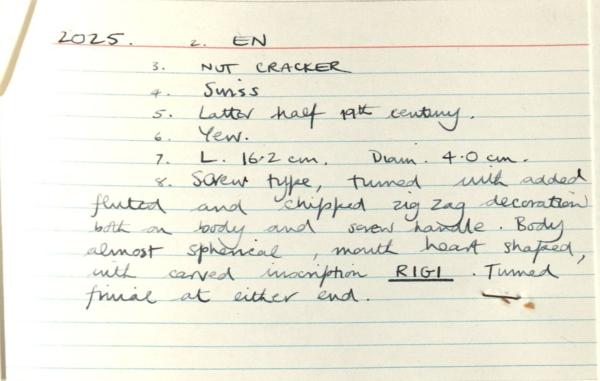 2025. 2. EN
3. NUT CRACKER
4. Swiss
5. Latter half 19th century.
6. Yew.
7. L. 16.2 cm. Diam. 4.0 cm.
8. Screw type, turned with added
fluted and chipped zig zag decoration
both on body and screw handle. Body
almost spherical, mouth heart shaped,
with carved inscription RIGI. Turned
finial at either end.